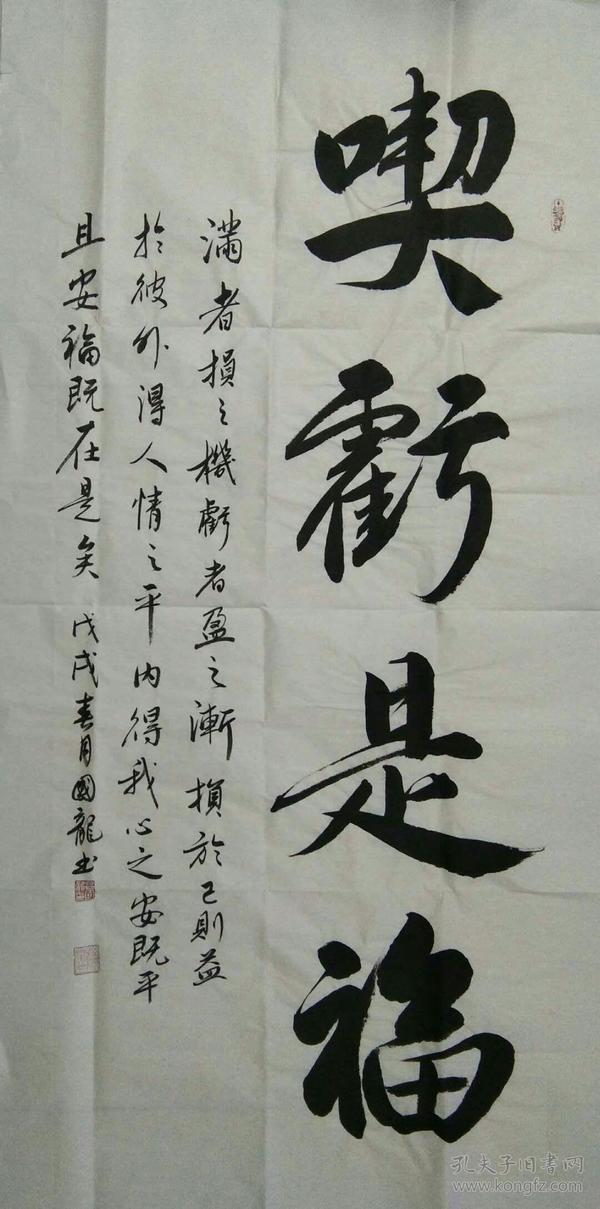 喫虧是福
滿者損之機虧者盈之漸損於己則益
於彼外得人情之平内得我心之安既平
且安福既在是矣 戊戌春月國龍書
孔夫子旧书网
www.kongfz.com